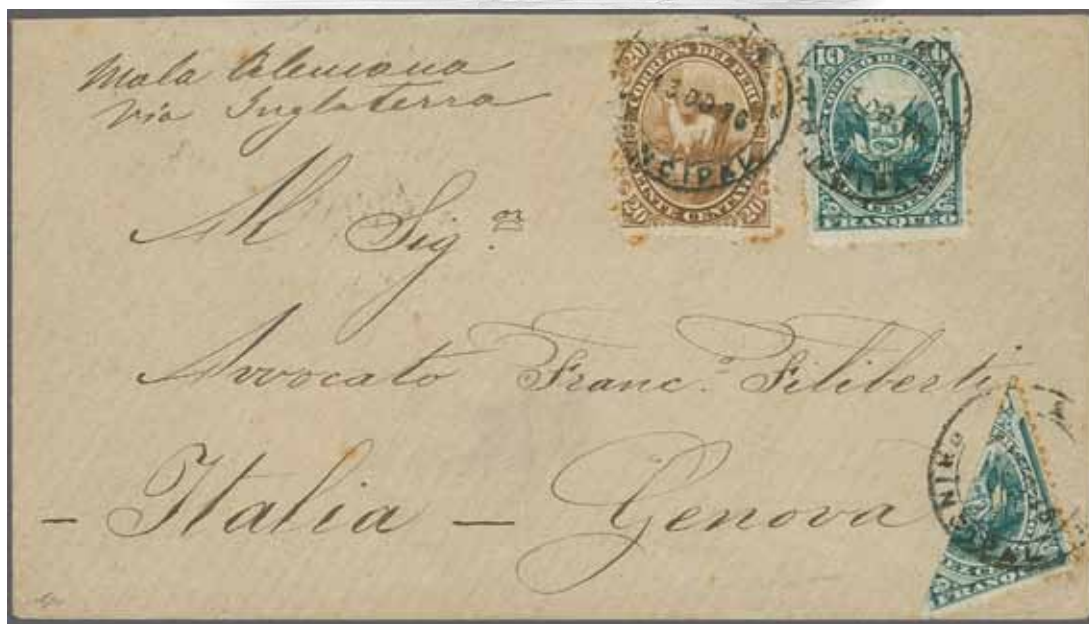 Mala Alemana
via Inglaterra
Al Sig.or
Avvocato Franc.o Filiberti
– Italia – Genova
20 20
CORREOS DEL PERU
VEINTE CENTAVOS
20 20
NCIPAL
10 10
CORREO DEL PERU
CENTAVOS
FRANQUEO